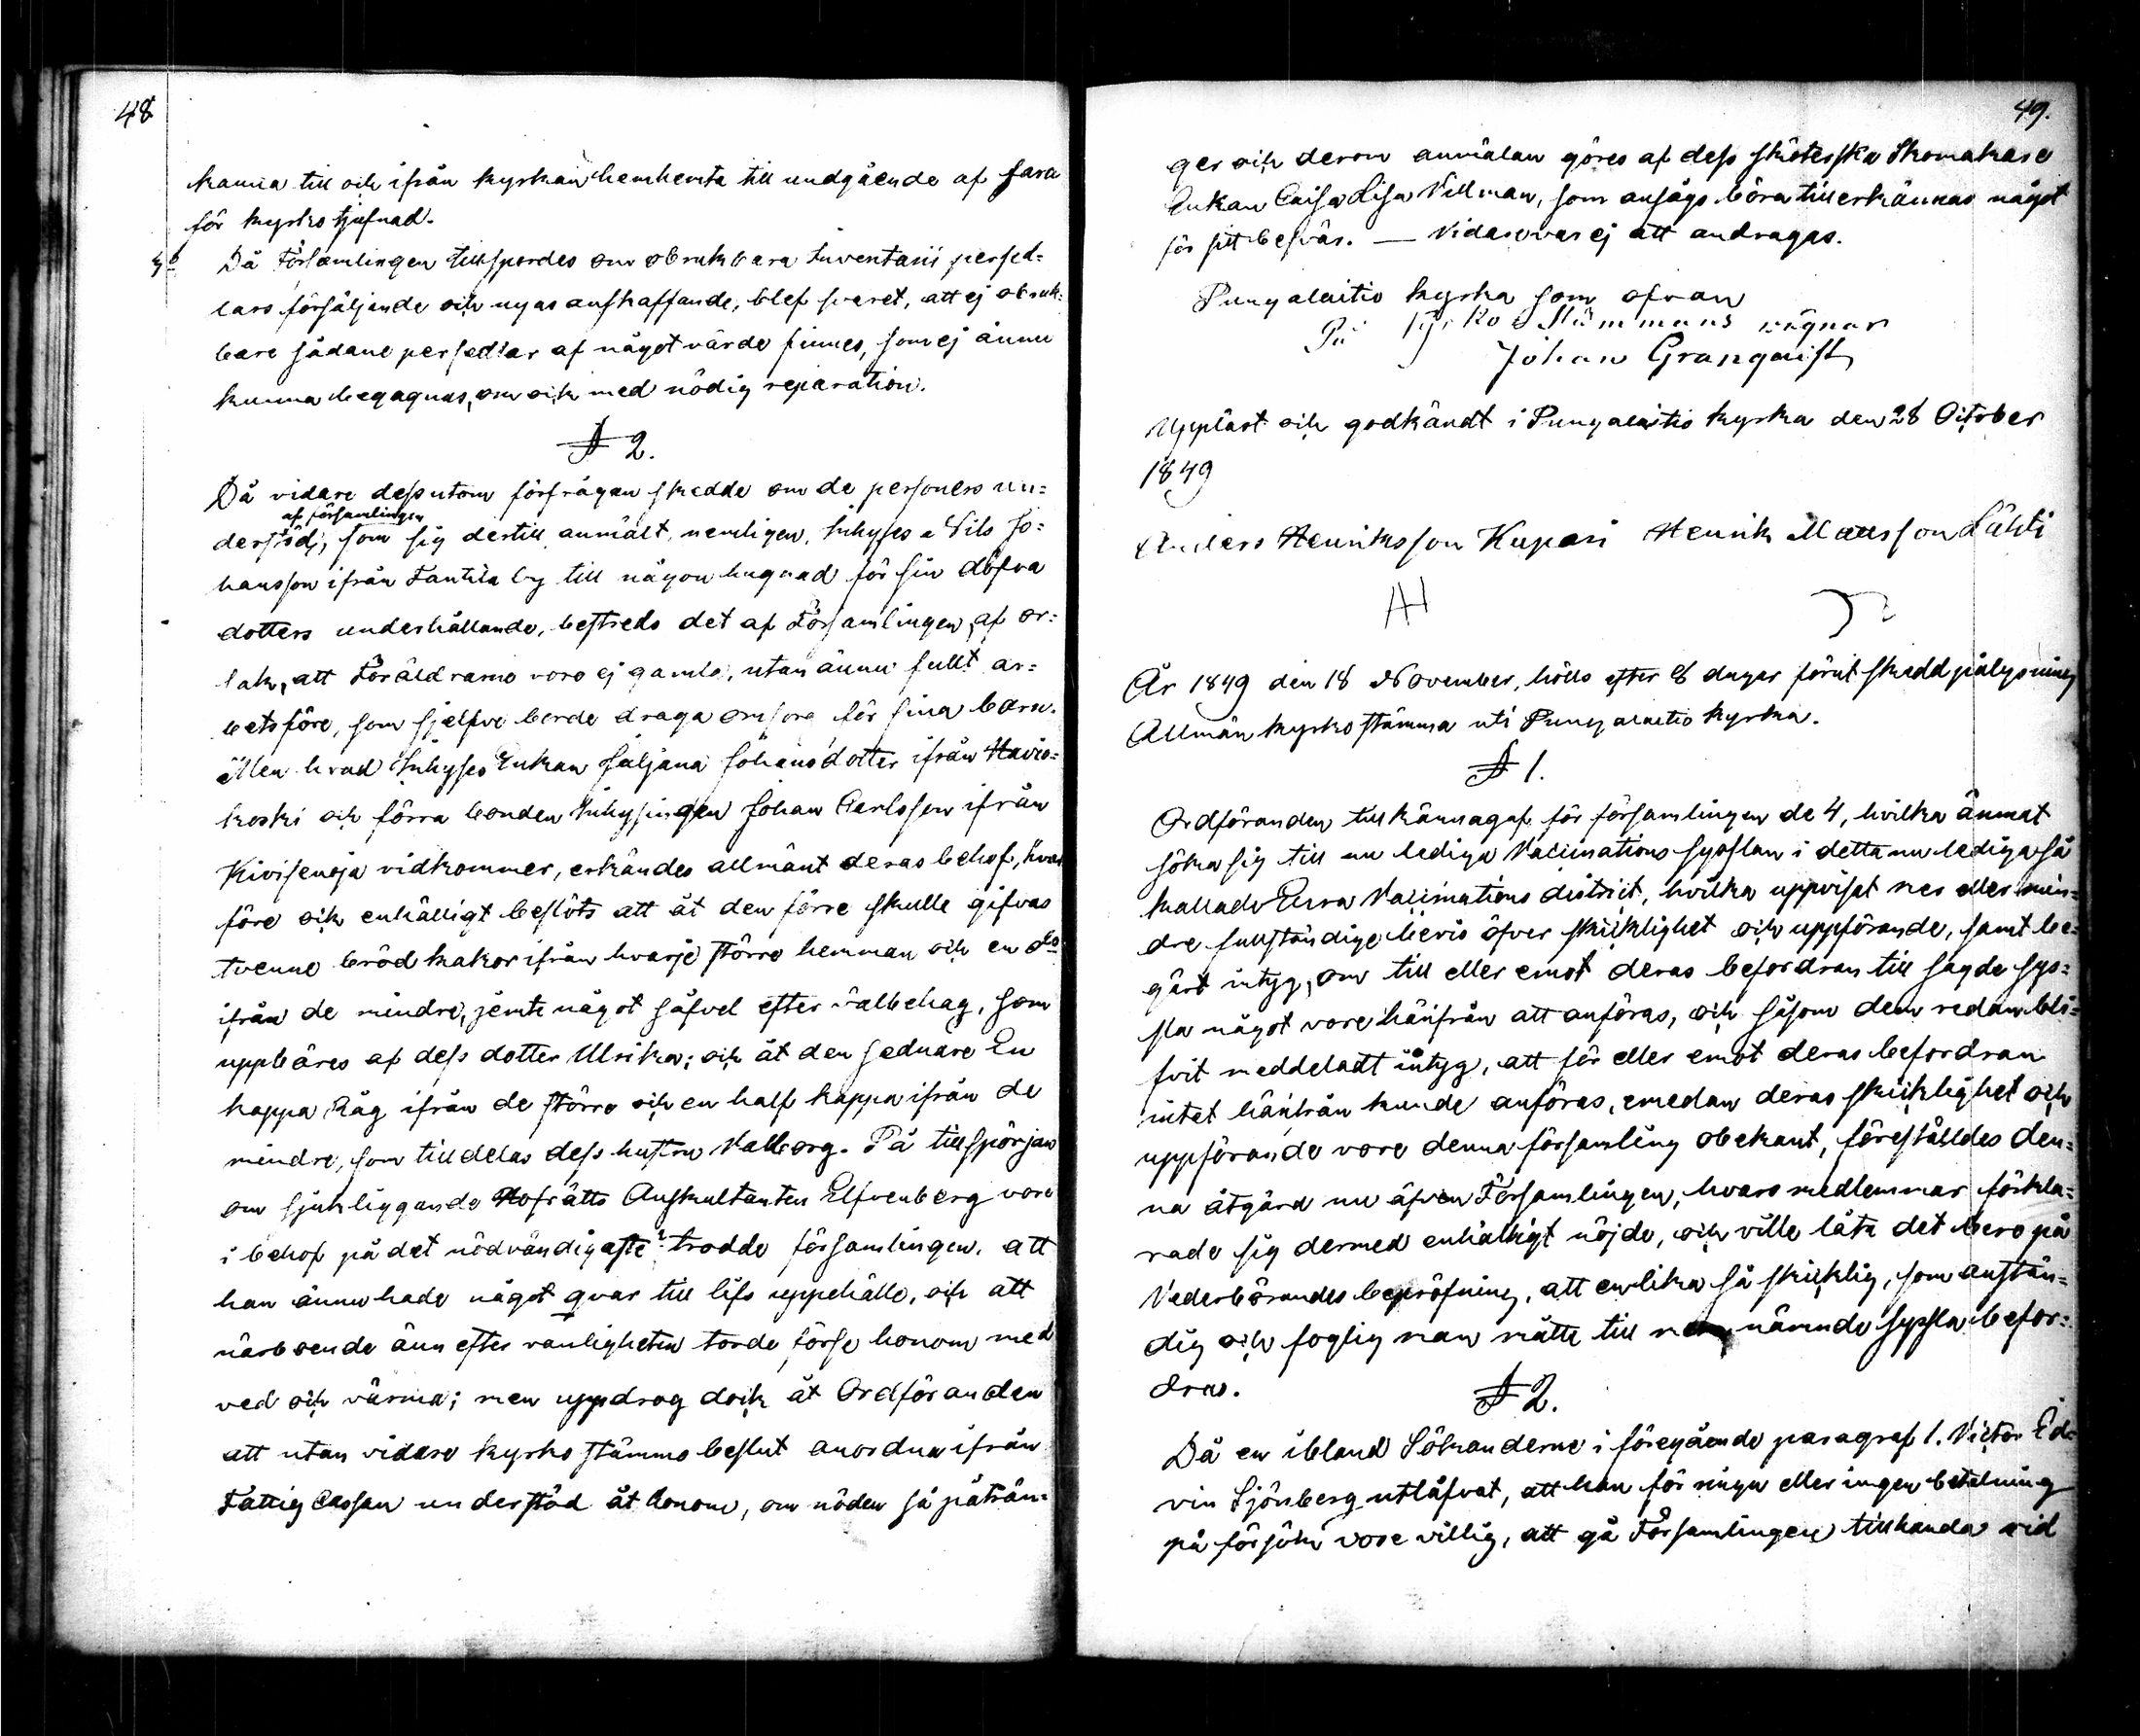 48
kanna till och ifrån kyrkan hemhemta till undgående af fara
för kyrkotjufnad.
3o Då Församlingen tillspordes om obrukbara Inventarii persed=
lars försäljande och nyas anskaffande, blef svaret, att ej obruk=
bare sådane persedlar af något värde finnes, som ej ännu
kunna begagnas, om och med nödig reparation.
§ 2.
Då vidare dessutom förfrågan skedde om de personers un=
af församlingen
derstödj, som sig dertill anmält, nemligen, Inhyses Nils Jo=
hansson ifrån Tantila by till någon hugnad för sin döfva
dotters underhållande, bestreds det af Församlingen, af or=
sak, att Föräldrarne voro ej gamla, utan ännu fullt ar=
betsföre, som sjelfve borde draga omsorg för sina barn.
Men hvad Inhyses Enkan Juljana Johansdotter ifrån Havio=
koski och förra bonden Inhysingen Johan Carlsson ifrån
Kivisenoja vidkommer, erkändes allmänt deras behof, hvar
före och enhälligt beslöts att åt den förre skulle gifvas
tvenne bröd kakor ifrån hvarje större hemman och en do
ifrån de mindre, jemte något såfvel efter välbehag, som
uppbäres af dess dotter Ulrika; och åt den sednare En
kappa Råg ifrån de större och en half kappa ifrån de
mindre, som tilldelas dess hustru Valborg. På tillspörjan
om sjukliggande Hofrätts Auskultanten Elfvenberg vore
i behof på det nödvändigaste? trodde församlingen, att
han ännu hade något qvar till lifs uppehälle, och att
närboende änn efter vanligheten torde förse honom med
ved och värma; men uppdrog dock åt Ordföranden
att utan vidare kyrkostämmo beslut anordna ifrån
Fattig Cassan understöd åt honom, om nöden så påträn=
49.
ger och derom anmälan göres af dess sköterska Skomakare
Enkan Caisa Lisa Villman, som ansågs böra tillerkännas något
för sitt besvär. — Vidare var ej att andragas.
Pungalaitio kyrka som ofvan
På Kyrko Stämmans vägnar
Johan Granqvist
Uppläst och godkändt i Pungalaitio kyrka den 28 October
1849
Anders Henriksson Kupari Henrik Mattsson Lähti
AH
År 1849 den 18 November, hölls efter 8 dagar förut skedd pålysning
Allmän kyrkostämma uti Pungalaitio kyrka.
§ 1.
Ordföranden tillkännagaf för församlingen de 4, hvilka ämnat
söka sig till nu lediga Vaccinations sysslan i detta nu lediga så
kallade Eura Vaccinations district, hvilka uppvist mer eller min=
dre fullständige bevis öfver skicklighet och uppförande, samt be=
gärt intyg, om till eller emot deras befordran till sagde sys=
sla något vore härifrån att anföras, och såsom dem redan bli=
fvit meddeladt intyg, att för eller emot deras befordran
intet härifrån kunde anföras, emedan deras skicklighet och
uppförande vore denna församling obekant, föreställdes den=
na åtgärd nu äfven Församlingen, hvars medlemmar förkla=
rade sig dermed enhälligt nöjde, och ville låta det bero på
Vederbörandes bepröfning, att en lika så skicklig, som anstän=
dig och foglig man måtte till nämnde syssla befor=
dras.
§ 2.
Då en ibland Sökanderne i föregående paragraf 1. Victor Ed=
vin Sjönberg utläfvat, att han för ringa eller ingen betalning
på försök vore villig, att gå Församlingen tillhanda vid